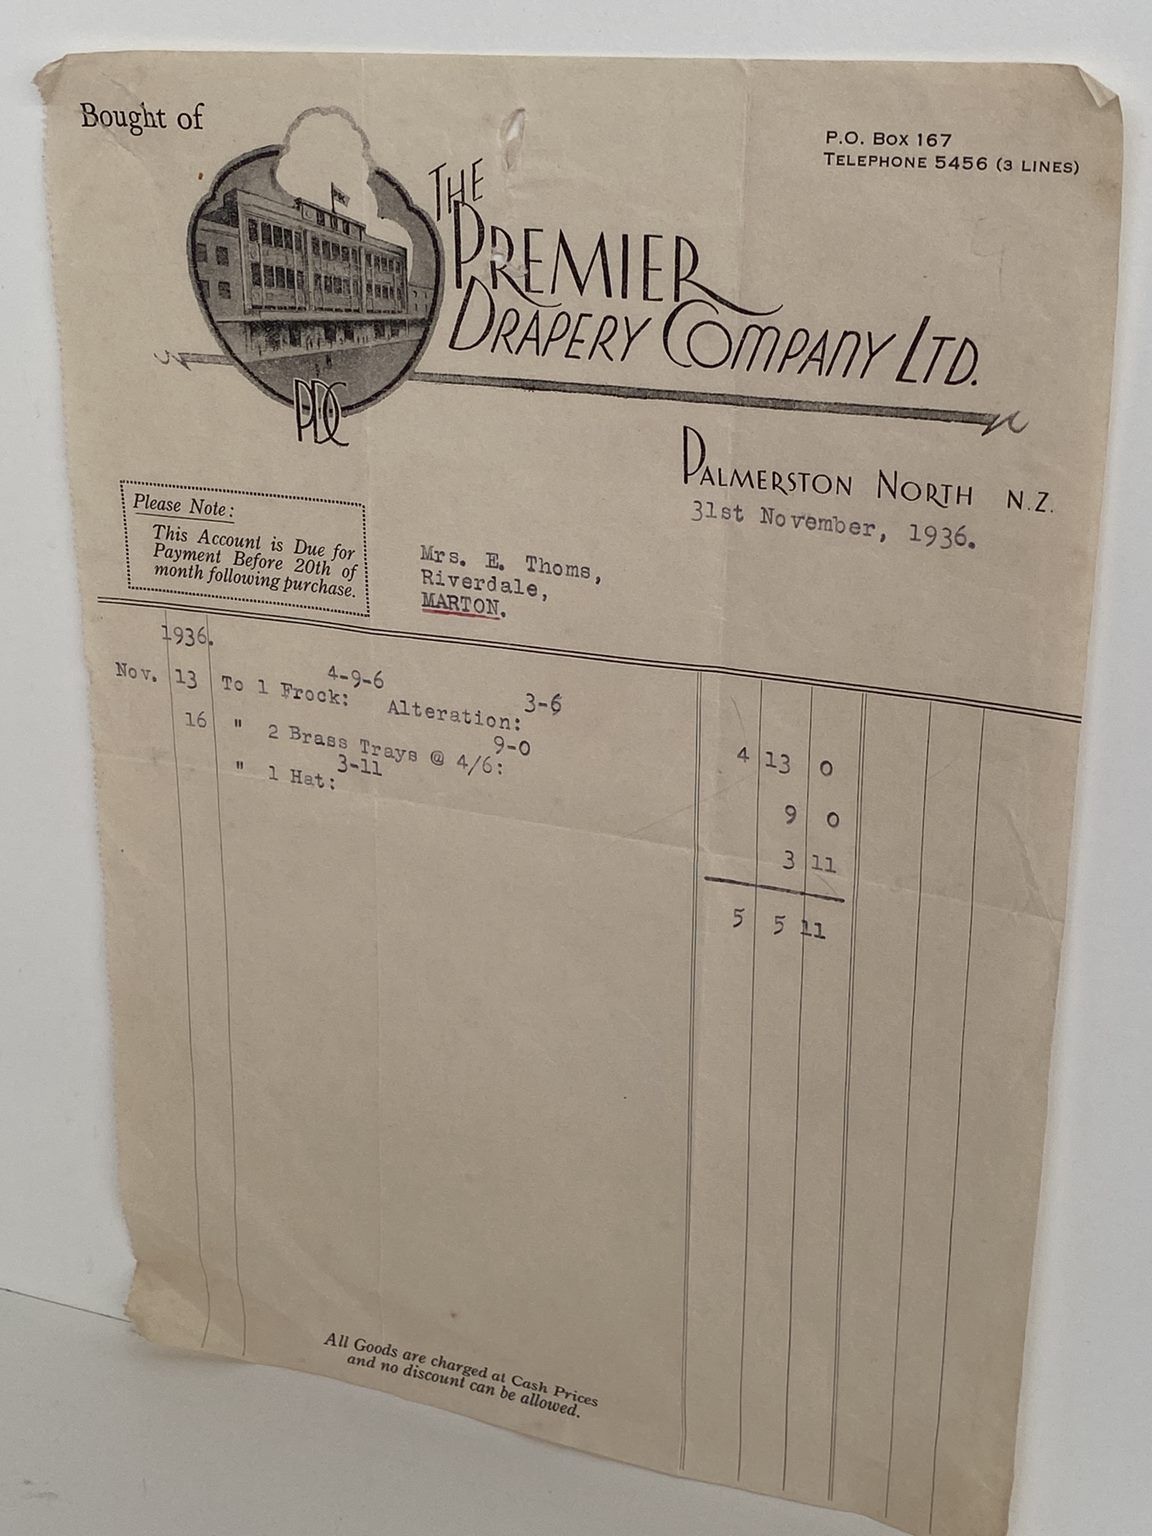 Bought of
P.O. Box 167
Telephone 5456 (3 lines)
The
Premier
Drapery Company Ltd.
PDC
Palmerston North N.Z.
31st November, 1936.
Please Note:
This Account is Due for
Payment Before 20th of
month following purchase.
Mrs. E. Thoms,
Riverdale,
MARTON.
1936.
4-9-6 3-6
Nov. 13 To 1 Frock: Alteration: 4 13 0
9-0
16 " 2 Brass Trays @ 4/6: 9 0
3-11
" 1 Hat: 3 11
5 5 11
All Goods are charged at Cash Prices
and no discount can be allowed.